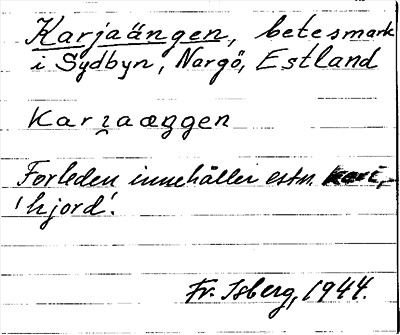 Karjaängen, betesmark
i Sydbyn, Nargö, Estland
Karjaæŋgen
Förleden innehåller estn. kari,
'hjord'.
Fr. Isberg, 1944.